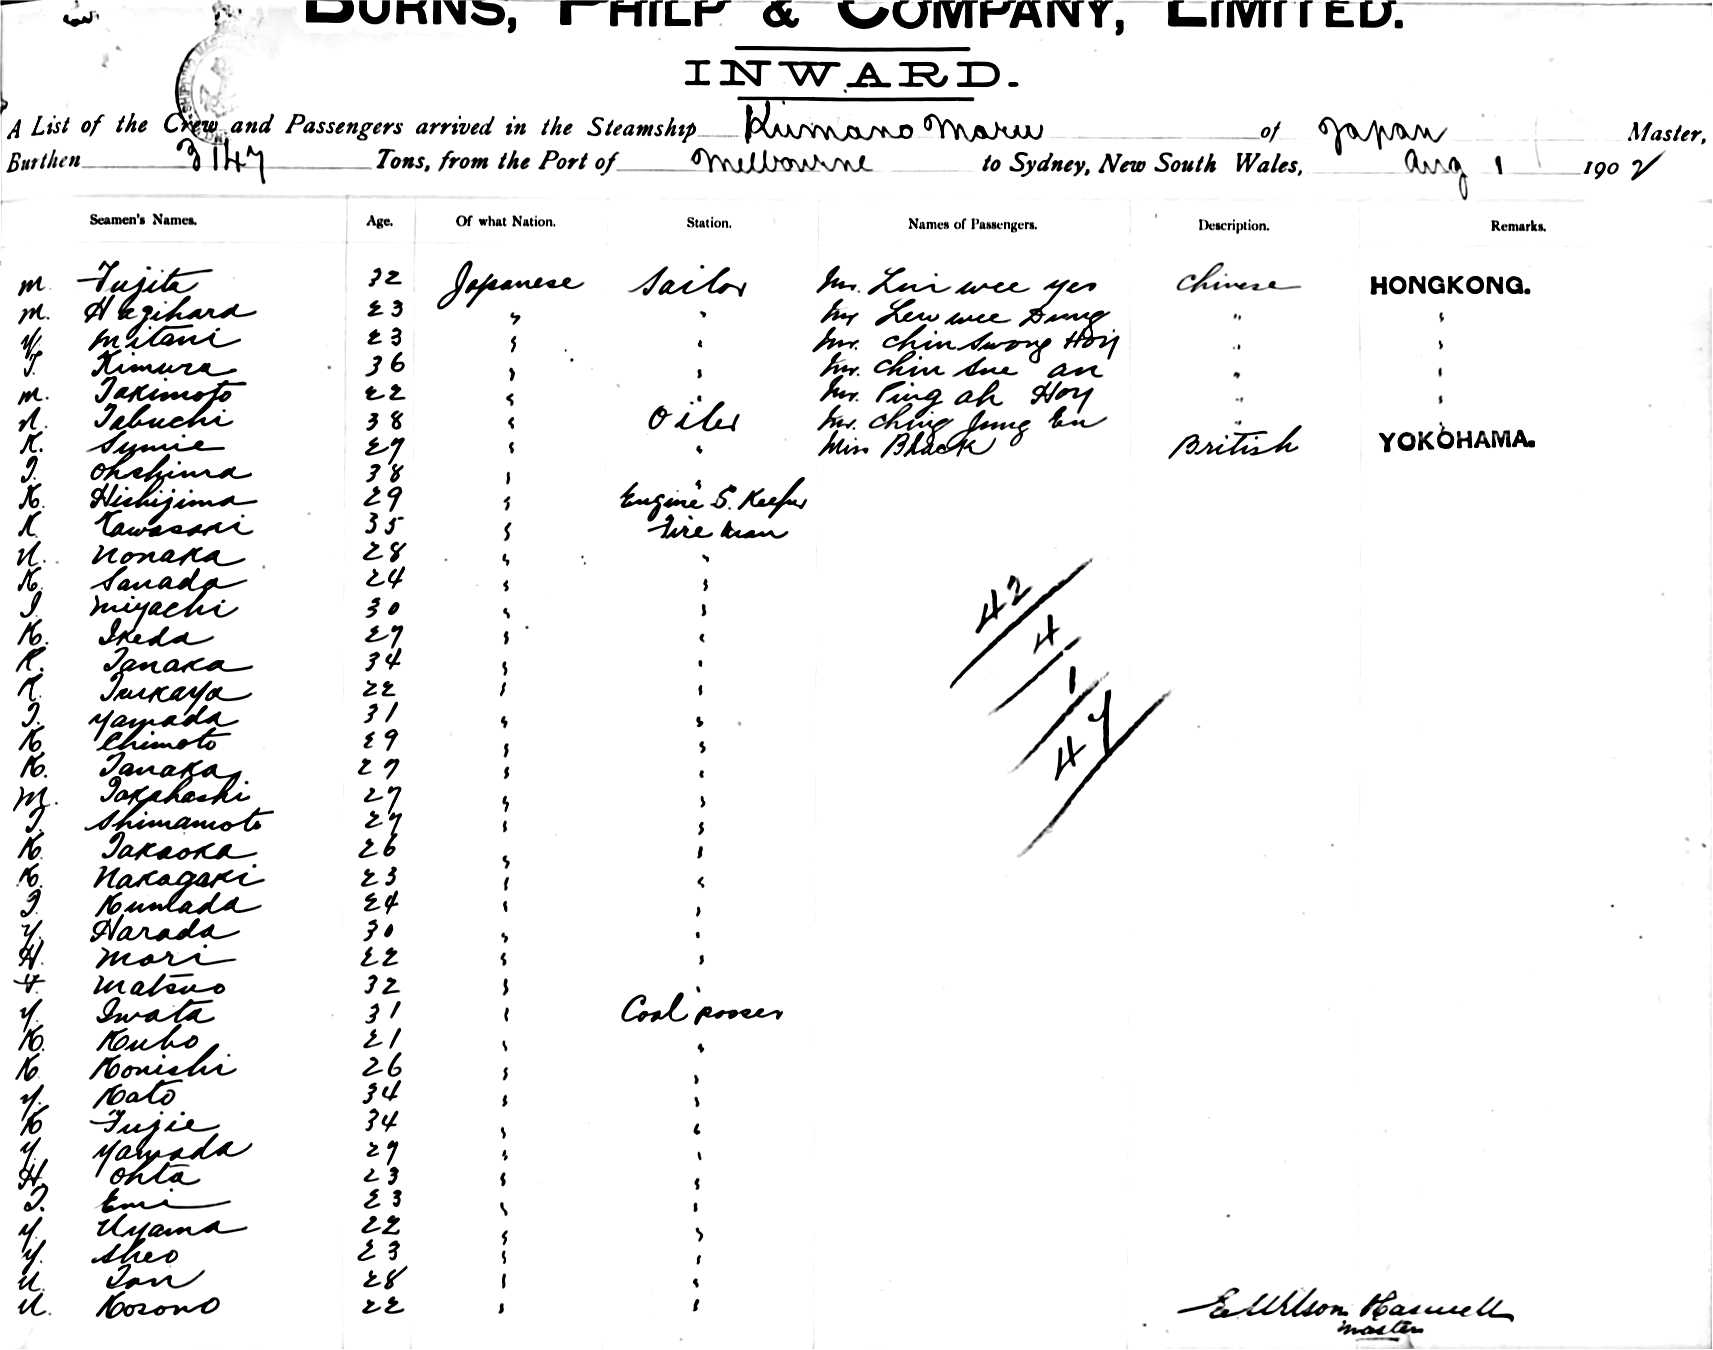 BURNS, PHILP & COMPANY, LIMITED.
INWARD.
A List of the Crew and Passengers arrived in the Steamship Kumano Maru of Japan Master,
Burthen 3147 Tons, from the Port of Melbourne to Sydney, New South Wales, Aug 1 1902
Seamen's Names. Age. Of what Nation. Station. Names of Passengers. Description. Remarks.
M. Fujita 32 Japanese Sailor Mr. Lui wee yes Chinese HONGKONG.
M. Hagihara 23 " " Mr Lew wee Dung " "
Y. Mitani 23 " " Mr. Chin Swong Hoy " "
T. Kimura 36 " " Mr. Chin Sue an " "
M. Takimoto 22 " " Mr. Ping ah Hoy " "
N. Tabuchi 38 " Oiler Mr. Ching Jung En " "
K. Sumie 27 " " Miss Black British YOKOHAMA.
T. Ohshima 38 " "
K. Hishijima 29 " Engine S. Keeper
K. Kawasaki 35 " Fire man
N. Nonaka 28 " "
K. Sanada 24 " "
I. Miyachi 30 " "
K. Ikeda 27 " "
K. Tanaka 34 " "
K. Tsukaya 22 " "
T. Yamada 31 " "
K. Chimoto 29 " "
K. Tanaka 27 " "
M. Takahashi 27 " "
T. Shimamoto 27 " "
K. Takaoka 26 " "
K. Nakagaki 23 " "
T. Kumada 24 " "
Y. Harada 30 " "
H. Mori 22 " "
F. Matsuo 32 " "
Y. Iwata 31 " Coal passer
K. Kubo 21 " "
K. Konishi 26 " "
Y. Kato 34 " "
K. Fujie 34 " "
Y. Yamada 27 " "
H. Ohta 23 " "
T. Emi 23 " "
Y. Uyama 22 " "
Y. Sheo 23 " "
U. Tan 28 " "
U. Kosono 22 " "
42
4
1
47
E Wilson Haswell
Master